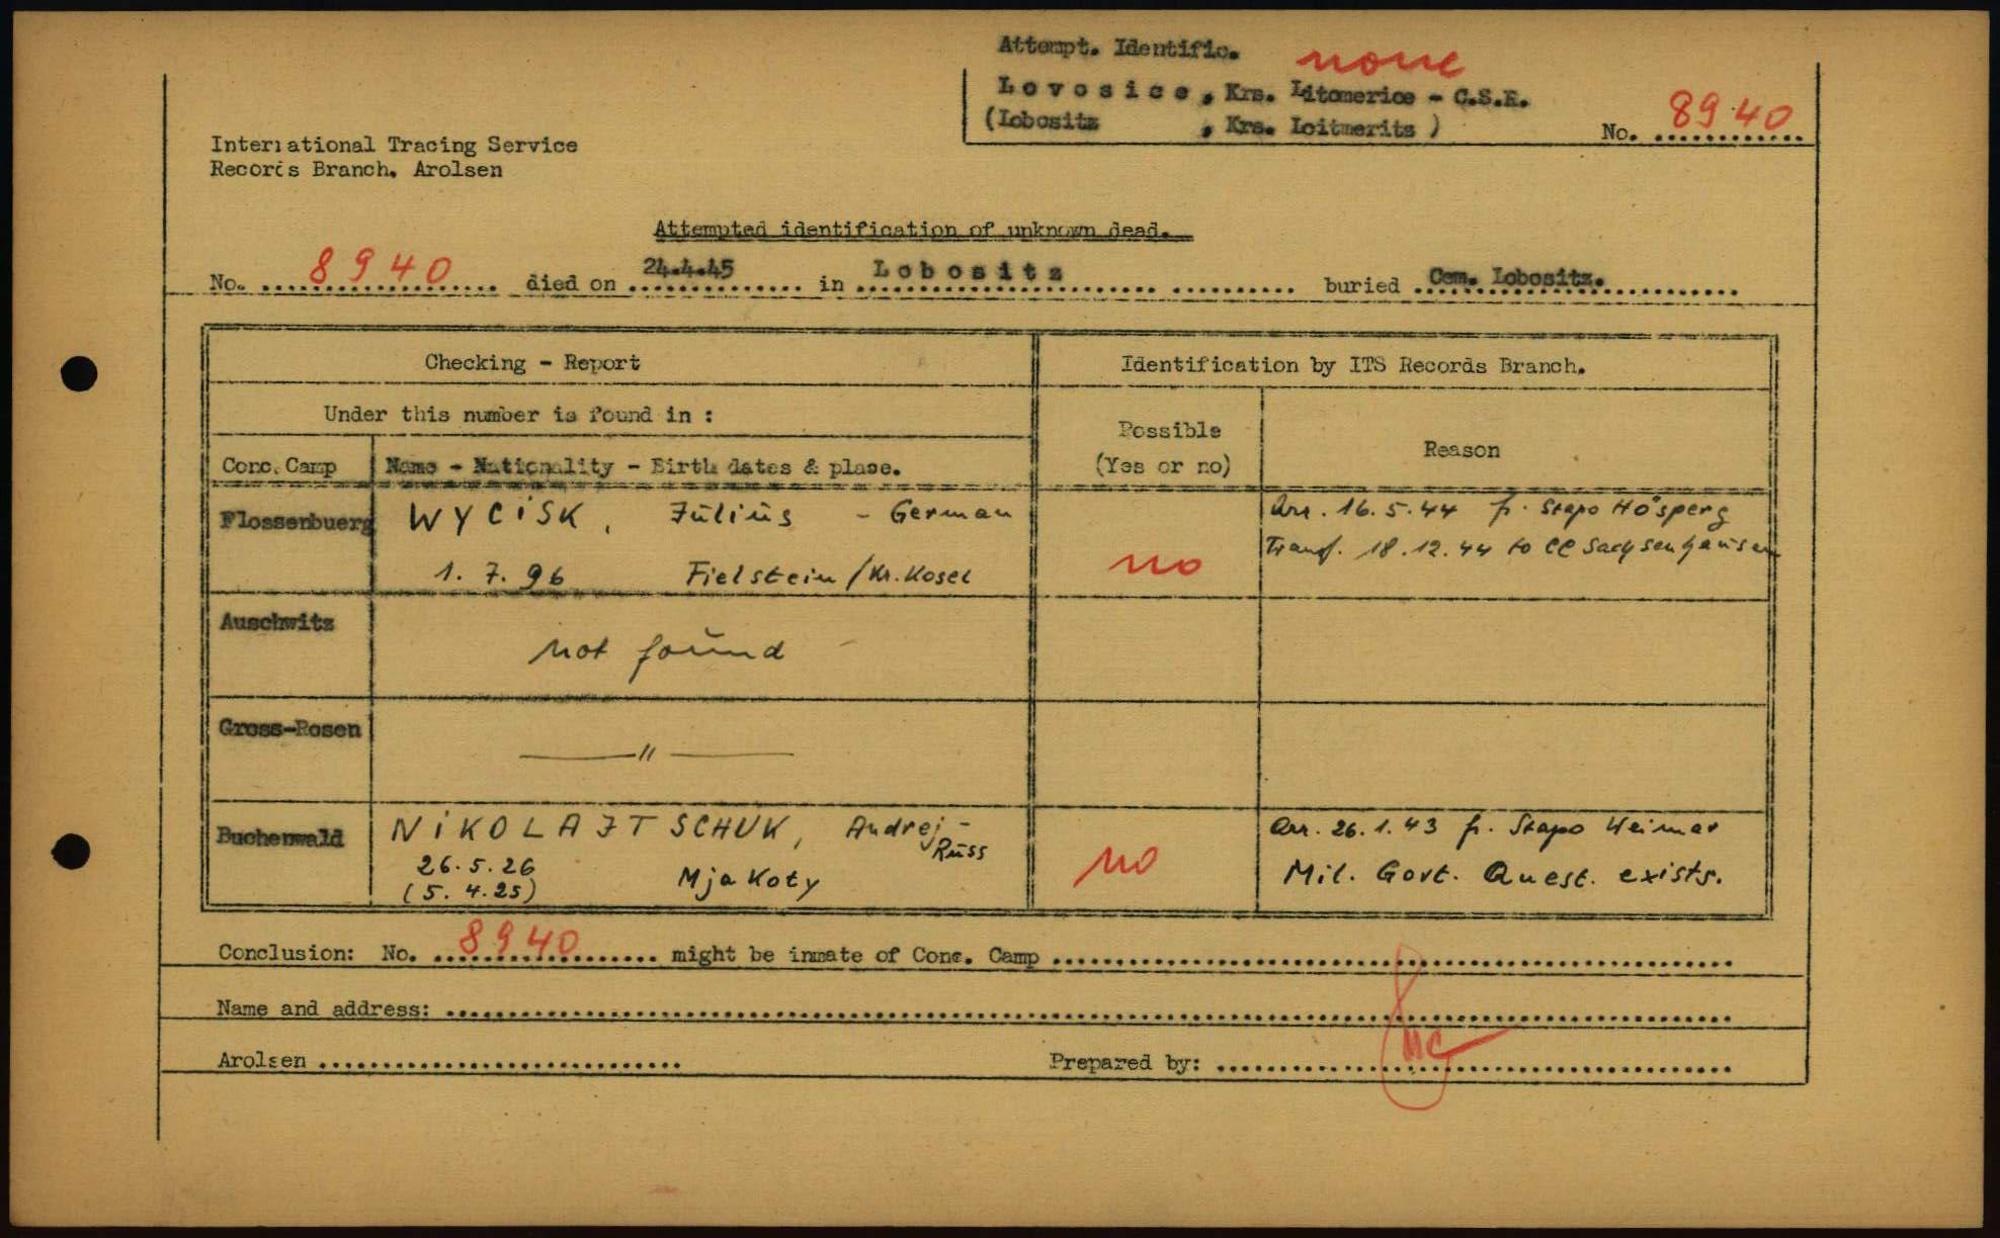 Attempt. Identific. none
Lovosice, Krs. Litomerice - C.S.R.
(Lobositz , Krs. Leitmerits ) No. 8940
International Tracing Service
Records Branch. Arolsen
Attempted identification of unknown dead.
No. 8940 died on 24.4.45 in Lobositz buried Cem. Lobositz.
Checking - Report Identification by ITS Records Branch.
Under this number is found in :
Possible
(Yes or no) Reason
Conc. Camp Name - Nationality - Birth dates & plase.
Flossenbuerg WYCISK, Julius - German Arr. 16.5.44 fr. Stapo Hösperg
1.7.96 Fielstein /Kr. Kosel no Transf. 18.12.44 to CC Sachsenhausen
Auschwitz
not found -
Gross-Rosen
——— " ———
Buchenwald NIKOLAJTSCHUK, Andrej - Arr. 26.1.43 fr. Stapo Weimar
Russ
26.5.26 Mjakoty no Mil. Govt. Quest. exists.
(5.4.25)
Conclusion: No. 8940 might be inmate of Conc. Camp
Name and address:
Arolsen Prepared by: